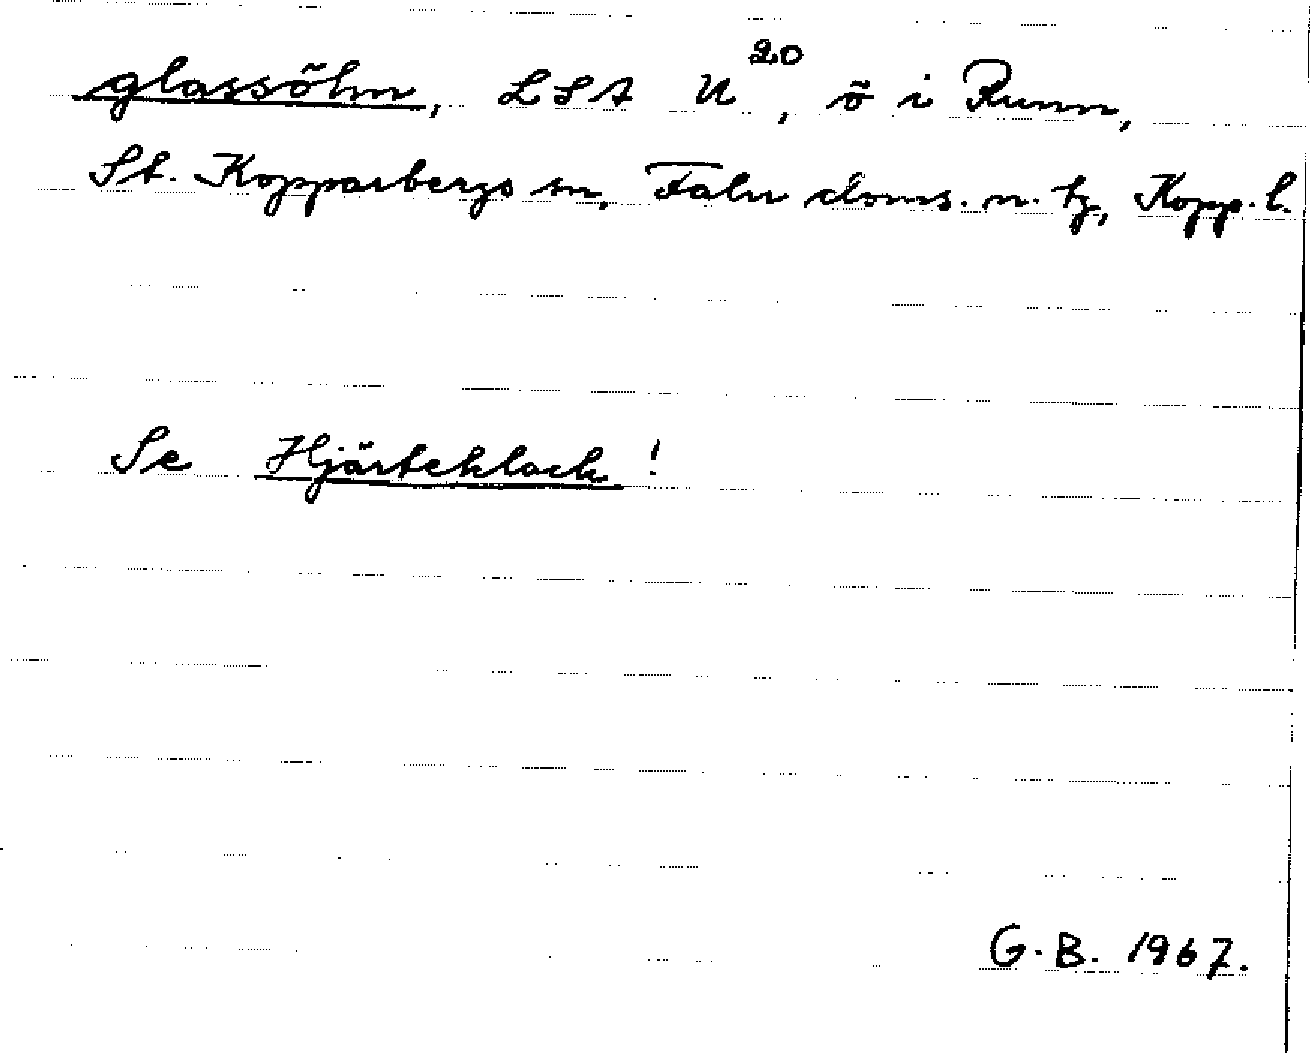 glassöhn, LSA U²⁰, ö i Runn,
St. Kopparbergs sn, Falu doms. n. tg, Kopp. l.
Se Hjärteklack!
G.B. 1967.